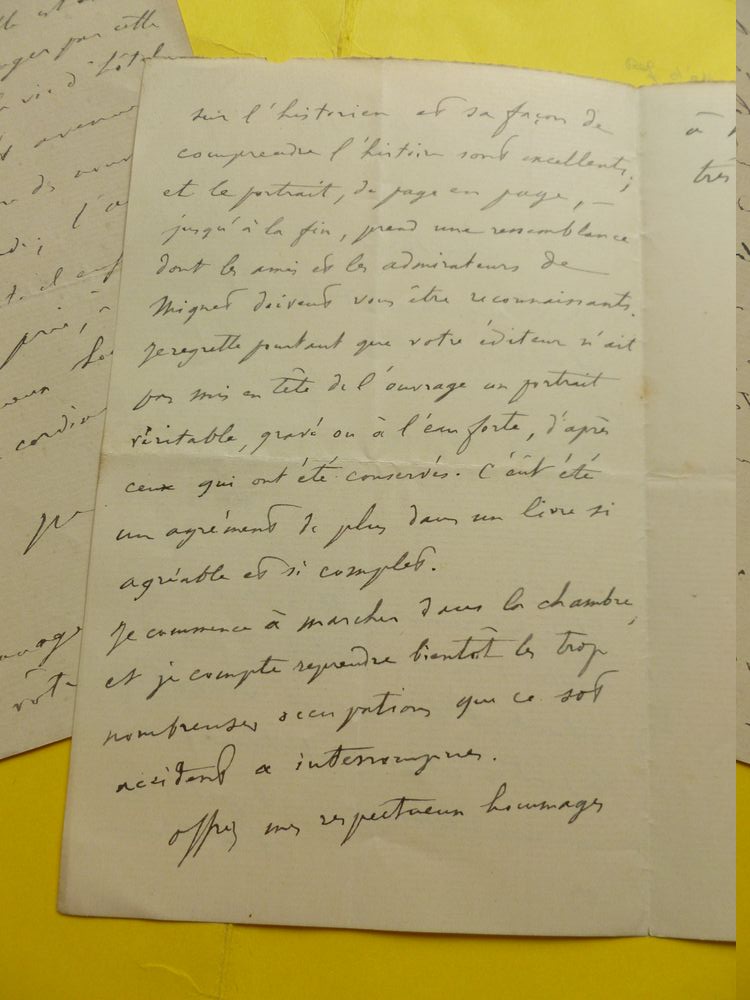 sur l'historien et sa façon de
comprendre l'histoire sont excellents;
et le portrait, de page en page, —
jusqu'à la fin, prend une ressemblance
dont les amis et les admirateurs de
Mignet doivent vous être reconnaissants.
Je regrette pourtant que votre éditeur n'ait
pas mis en tête de l'ouvrage un portrait
véritable, gravé ou à l'eau forte, d'après
ceux qui ont été conservés. C'eût été
un agrément de plus dans un livre si
agréable et si complet.
Je commence à marcher dans la chambre,
et je compte reprendre bientôt les trop
nombreuses occupations que ce sot
accident a interrompues.
Offrez mes respectueux hommages
à
très
par cette
cordia